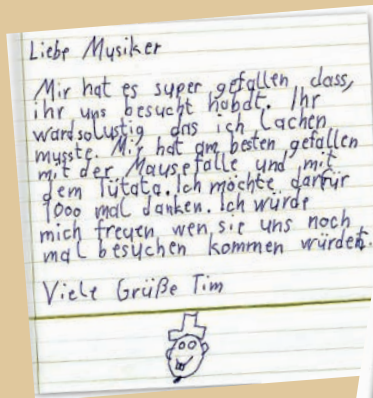 Liebe Musiker
Mir hat es super gefallen dass,
ihr uns besucht habdt. Ihr
wardsolustig das ich Lachen
musste. Mir hat am besten gefallen
mit der Mausefalle und mit
dem Tütata. Ich möchte darfür
1000 mal danken. Ich würde
mich freuen wen sie uns noch
mal besuchen kommen würden.
Viele Grüße Tim